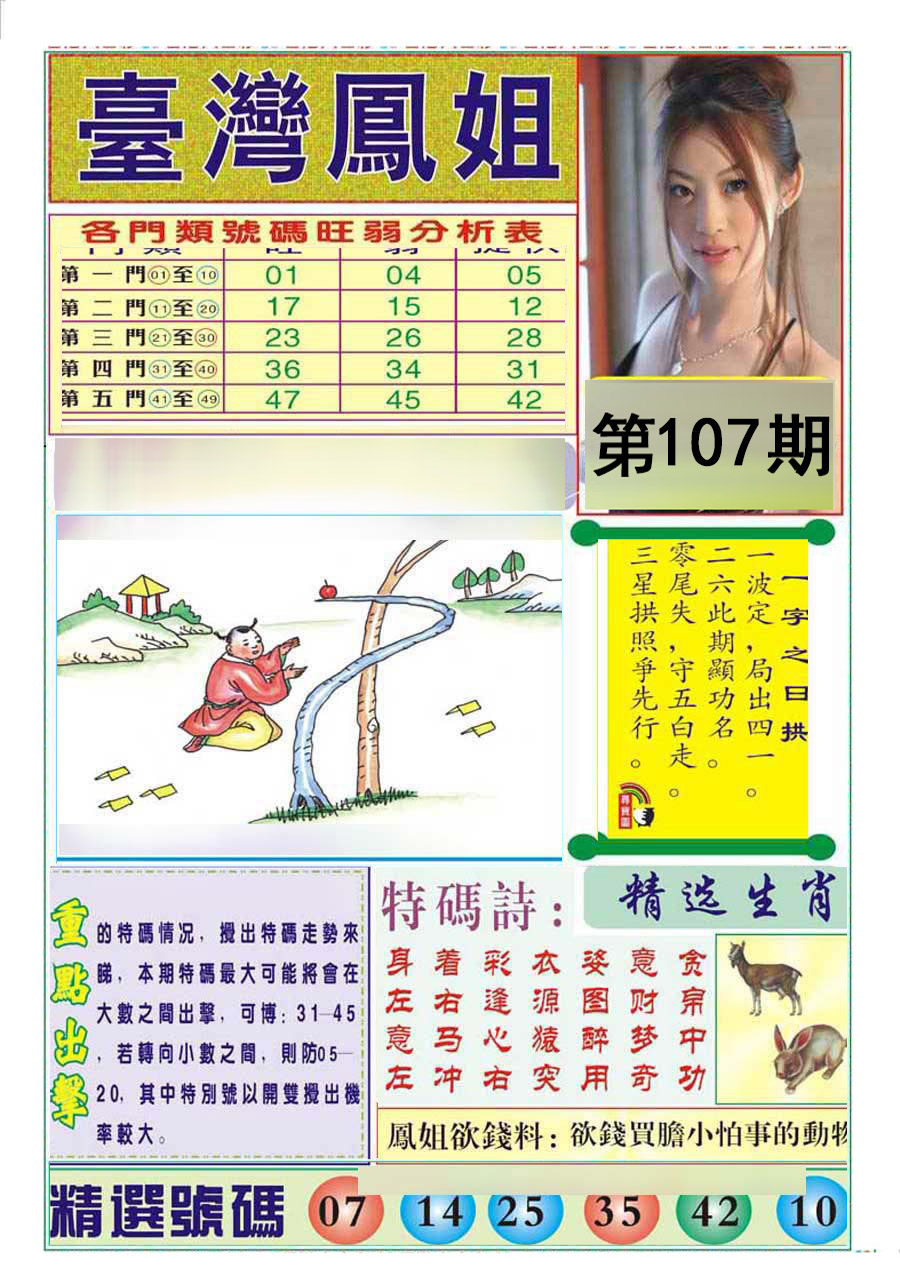 臺灣鳳姐
各門類號碼旺弱分析表
第一門01至10 01 04 05
第二門11至20 17 15 12
第三門21至30 23 26 28
第四門31至40 36 34 31
第五門41至49 47 45 42
第107期
一字之曰拱
一波定,局出四一。
二六此期顯功名。
零尾失,守五白走。
三星拱照爭先行。
尋寶圖
重點出擊
的特碼情況,攪出特碼走勢來
睇,本期特碼最大可能將會在
大數之間出擊,可博:31—45
,若轉向小數之間,則防05—
20,其中特別號以開雙攪出機
率較大。
特碼詩:
身着彩衣姿意贪
左右逢源图财帛
意马心猿醉梦中
左冲右突用奇功
精选生肖
鳳姐欲錢料:欲錢買膽小怕事的動物
精選號碼 07 14 25 35 42 10